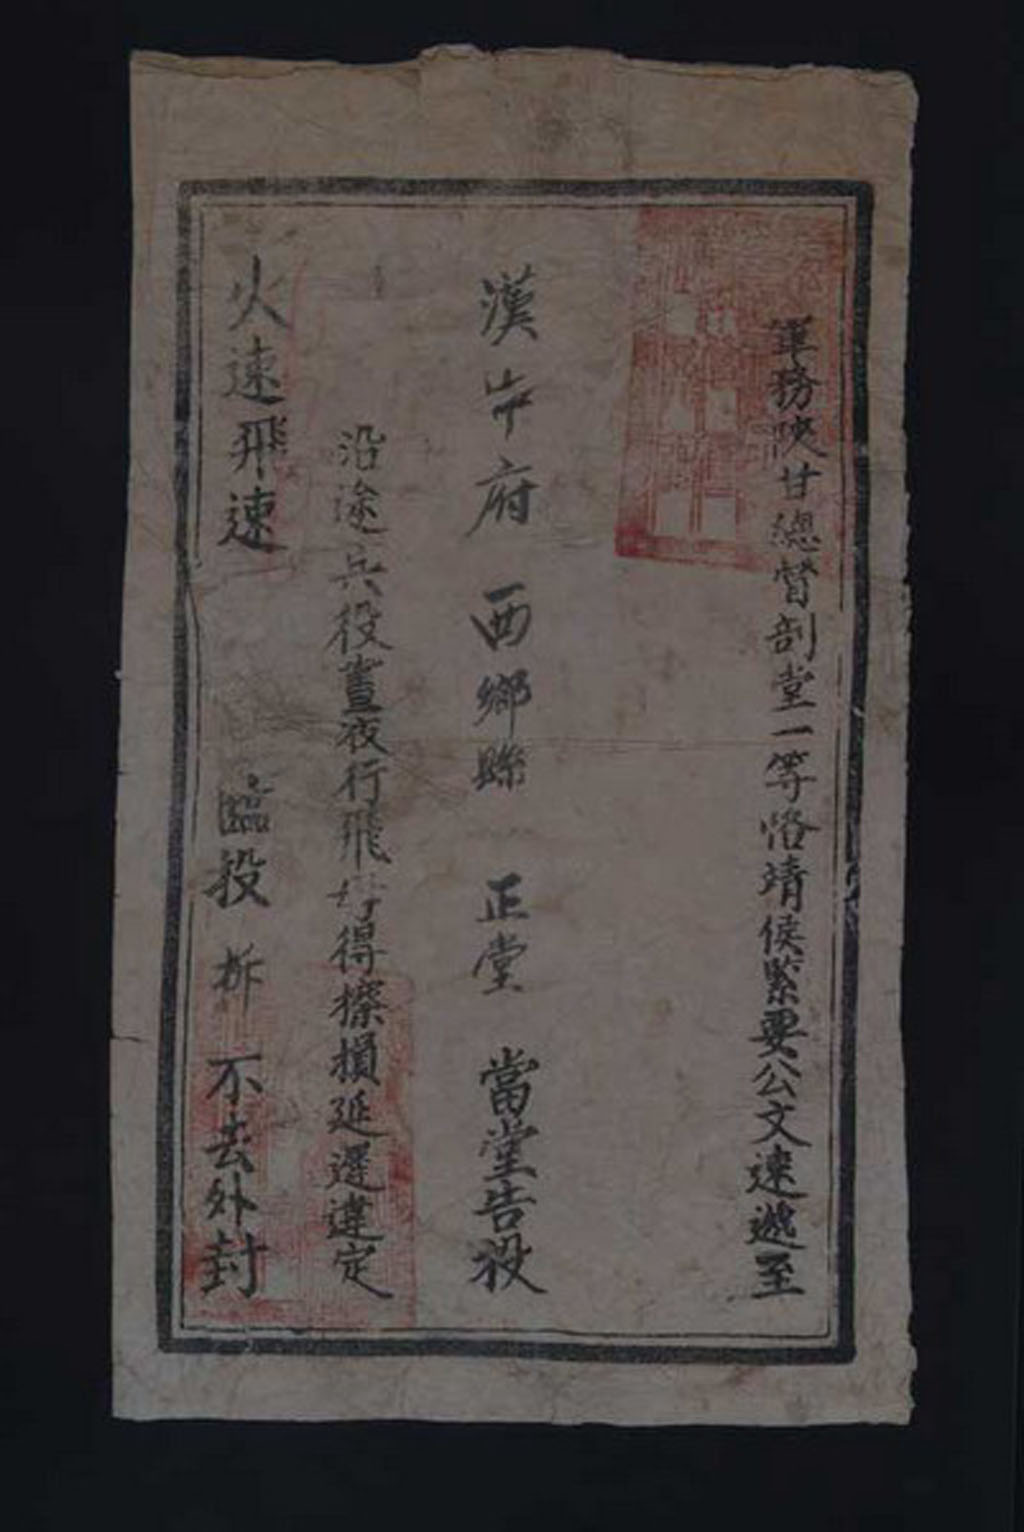 軍務陝甘總督部堂一等恪靖侯緊要公文速遞至
漢中府 西鄉縣 正堂 當堂告投
沿途兵役晝夜行飛毋得擦損延遲違定
火速飛速 臨投 拆 不去外封